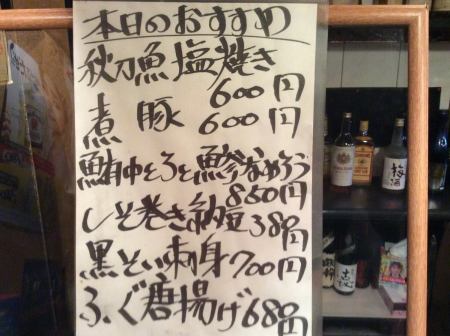 本日のおすすめ
秋刀魚塩焼き
600円
煮豚 600円
鮪中とろと鯵なめろう
860円
しそ巻き納豆380円
黒そい刺身700円
ふぐ唐揚げ680円
梅酒